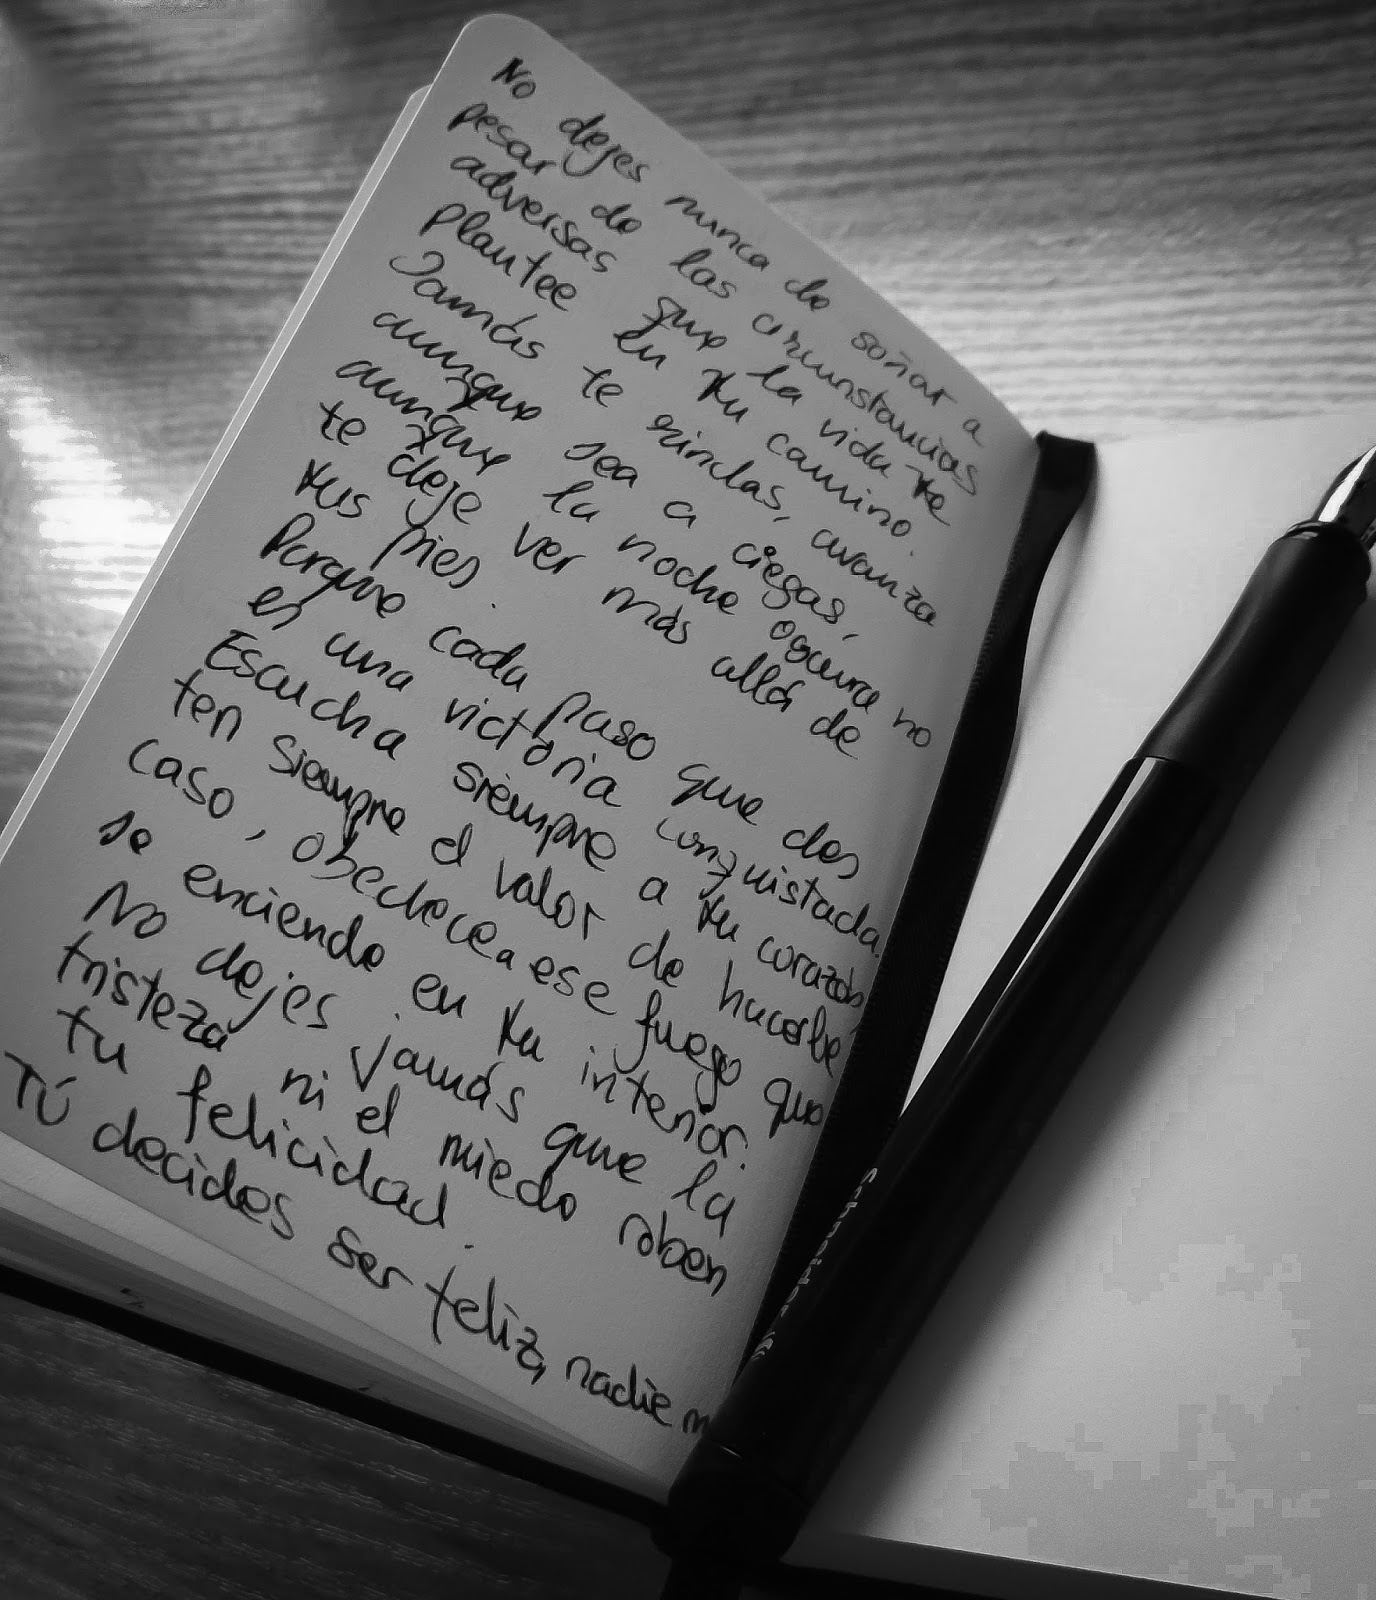 No dejes nunca de soñar a
pesar de las circunstancias
adversas que la vida te
plantee en tu camino.
Jamás te rindas, avanza
aunque sea a ciegas,
aunque la noche oscura no
te deje ver más allá de
tus pies.
Porque cada paso que des
es una victoria conquistada.
Escucha siempre a tu corazón,
ten siempre el valor de hacerle
caso, obedece a ese fuego que
se enciende en tu interior.
No dejes jamás que la
tristeza ni el miedo roben
tu felicidad.
Tú decides ser feliz, nadie
Schneider